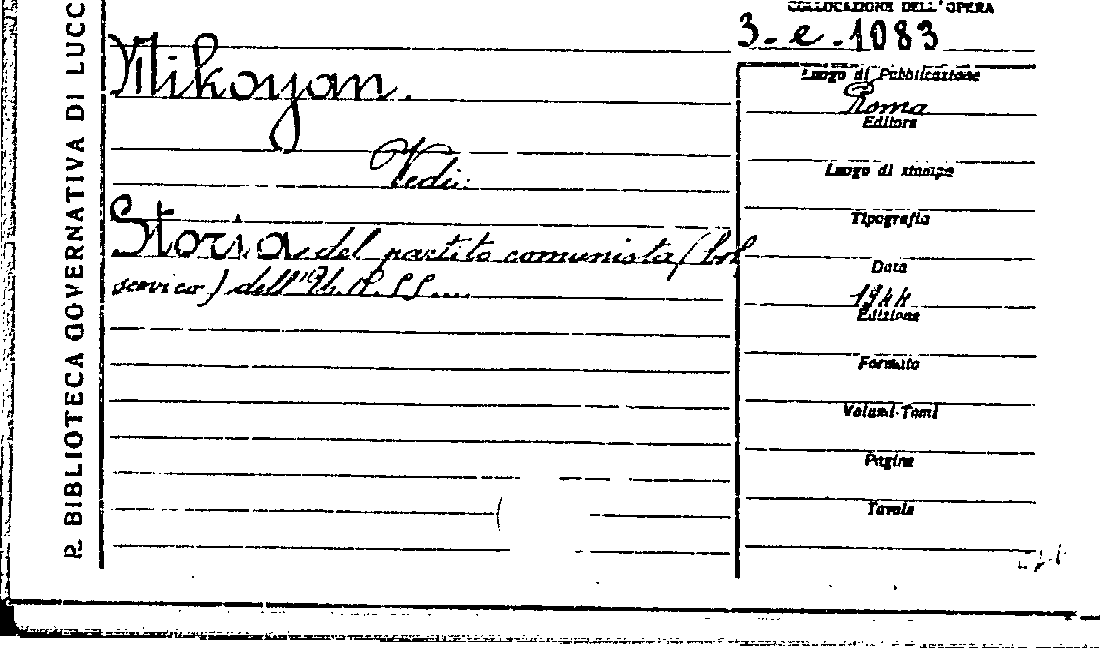 R. BIBLIOTECA GOVERNATIVA DI LUCC
COLLOCAZIONE DELL'OPERA
3-e-1083
Mikoyan.
Vedi:
Storia del partito comunista (bol
scevico) dell'U.R.SS....
Luogo di Pubblicazione
Roma
Editore
Luogo di stampa
Tipografia
Data
1944
Edizione
Formato
Volumi-Tomi
Pagine
Tavole